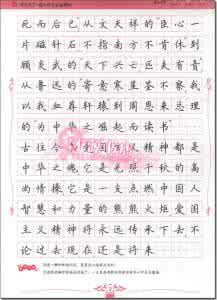 死而后已从文天祥的臣心一
片磁针石不指南方不肯休到
顾炎武的天下兴亡匹夫有责
从鲁迅的寄意寒星荃不察我
以我血荐轩辕到周恩来总理
的为中华之崛起而读书
古往今来爱国主义精神都是
中华之魂它是光照千秋的高
尚情操它是一支点燃中国人
智慧和力量的熊熊火炬爱国
主义精神将永远传承下去不
论过去现在还是将来